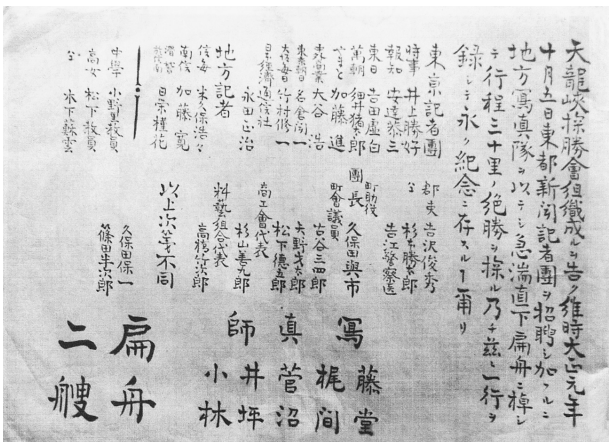 天龍峡探勝會組織成ルヲ告ク維時大正元年
十月五日東都新聞記者團ヲ招聘シ加フルニ
地方寫真隊ヲ以テシ急湍直下扁舟ニ棹シ
テ行程三十里ノ絶勝ヲ探ル乃チ茲ニ一行ヲ
録シテ永ク紀念ニ存スルヿ爾リ
東京記者團
時事 井上勝好
報知 安達 三
東日 吉田虚白
萬朝 細井猪太郎
やまと 加藤進
大谷浩
名倉聞一
竹村修一
經濟通信社 永田正治
地方記者
信毎 久保浩々
南信 加藤寛
中學 小野里教員
高女 松下教員
〃 木下蘇雲
郡吏 吉沢俊秀
〃 杉本勝太郎
吉江警察医
町助役
團長 久保田與市
町會議員 古谷三四郎
矢野 太郎
松下德五郎
商工會代表 杉山善九郎
料藝組合代表 高橋竹次郎
以上次第不同
久保田保一
篠田半次郎
寫真師
藤堂
梶間
菅沼
井坪
小林
扁舟
二艘